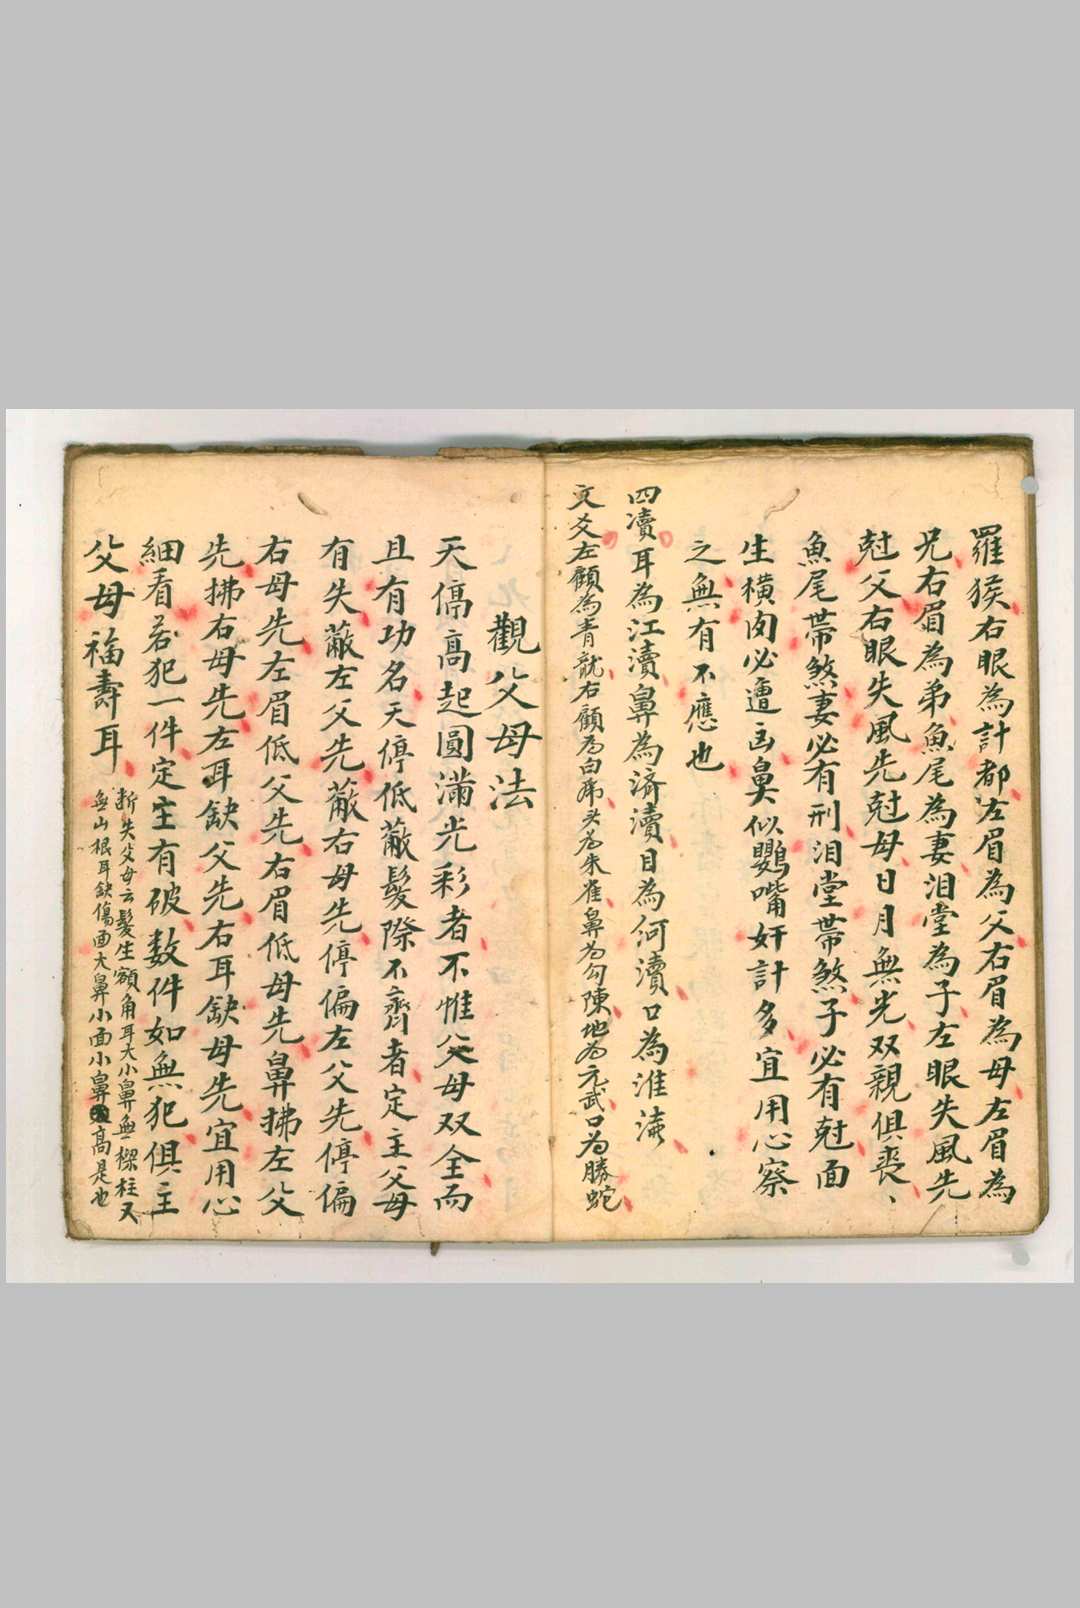 羅猴右眼為計都左眉為父右眉為母左眉為
兄右眉為弟魚尾為妻泪堂為子左眼失風先
尅父右眼失風先尅母日月無光双親俱喪、
魚尾帶煞妻必有刑泪堂帶煞子必有尅面
生横肉必遭凶鼻似鸚嘴奸計多宜用心察
之無有不應也
四瀆耳為江瀆鼻為济瀆目為河瀆口為淮瀆
文爻左顴為青龍右顴為白虎头為朱雀鼻为勾陳地为元武口为騰蛇
觀父母法
天停高起圓滿光彩者不惟父母双全而
且有功名天停低蔽髮際不齊者定主父母
有失蔽左父先蔽右母先停偏左父先停偏
右母先左眉低父先右眉低母先鼻拂左父
先拂右母先左耳缺父先右耳缺母先宜用心
細看若犯一件定主有破数件如無犯俱主
父母福壽耳
断失父母云髮生額角耳大小鼻無樑柱又
無山根耳缺傷面大鼻小面小鼻高是也